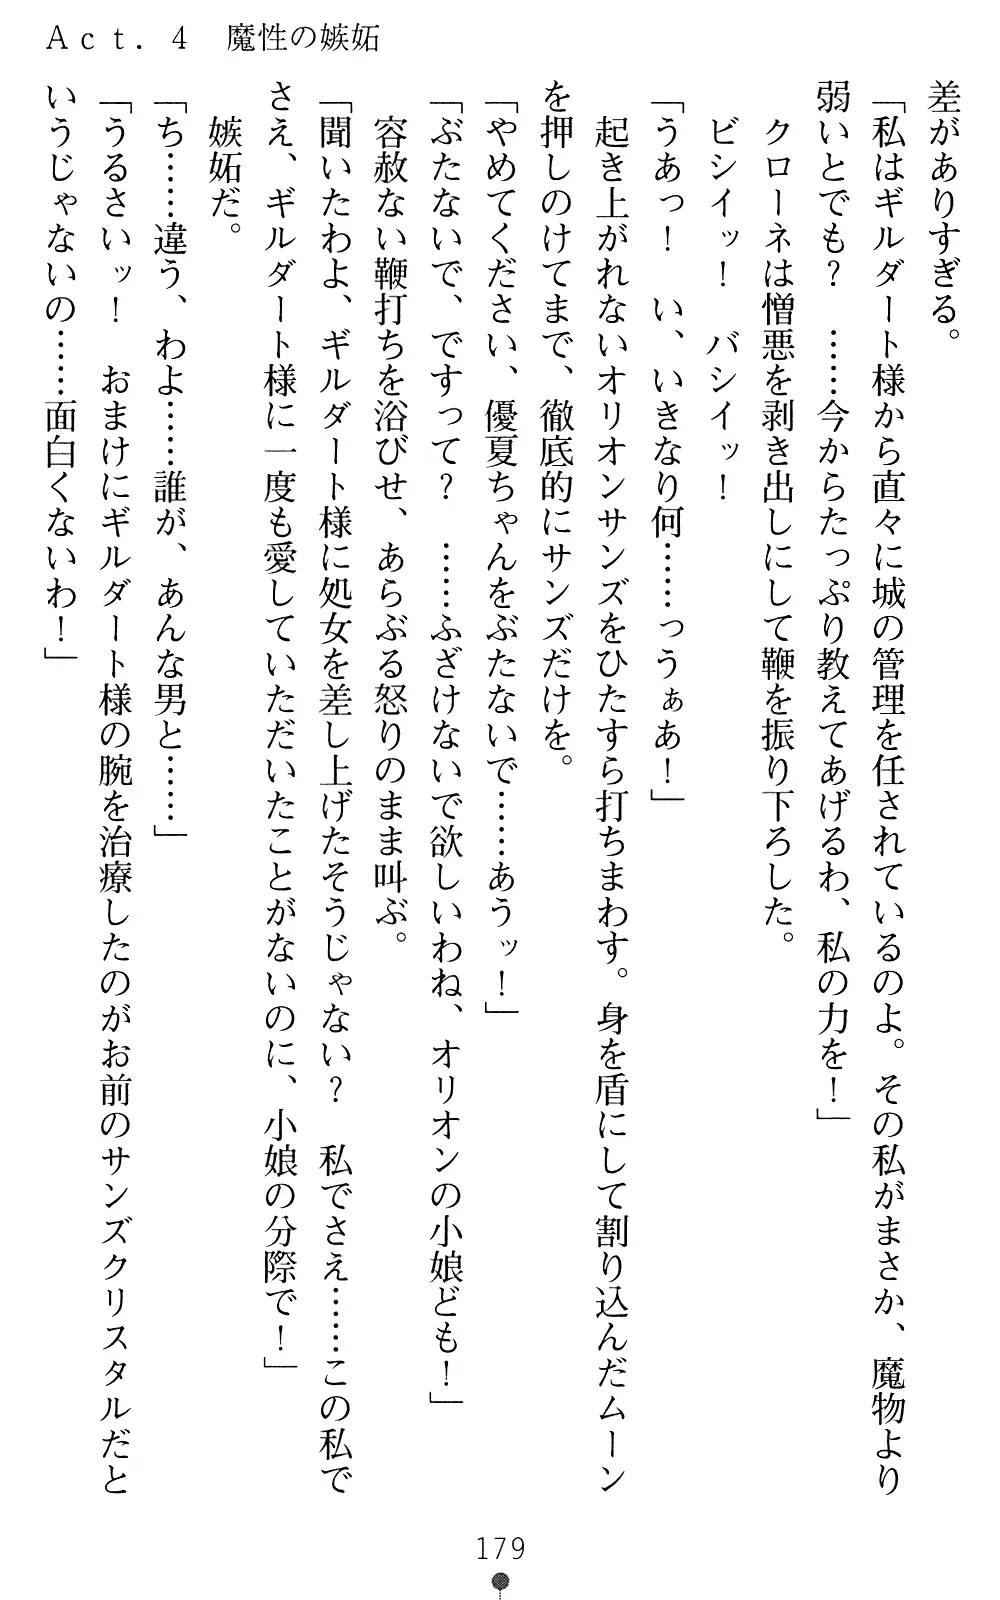 Act. 4　魔性の嫉妬
差がありすぎる。
「私はギルダート様から直々に城の管理を任されているのよ。その私がまさか、魔物より
弱いとでも？　……今からたっぷり教えてあげるわ、私の力を！」
　クローネは憎悪を剥き出しにして鞭を振り下ろした。
　ビシイッ！　バシイッ！
「うあっ！　い、いきなり何……っうぁあ！」
　起き上がれないオリオンサンズをひたすら打ちまわす。身を盾にして割り込んだムーン
を押しのけてまで、徹底的にサンズだけを。
「やめてください、優夏ちゃんをぶたないで……あうッ！」
「ぶたないで、ですって？　……ふざけないで欲しいわね、オリオンの小娘ども！」
　容赦ない鞭打ちを浴びせ、あらぶる怒りのまま叫ぶ。
「聞いたわよ、ギルダート様に処女を差し上げたそうじゃない？　私でさえ……この私で
さえ、ギルダート様に一度も愛していただいたことがないのに、小娘の分際で！」
　嫉妬だ。
「ち……違う、わよ……誰が、あんな男と……」
「うるさいッ！　おまけにギルダート様の腕を治療したのがお前のサンズクリスタルだと
いうじゃないの……面白くないわ！」
179